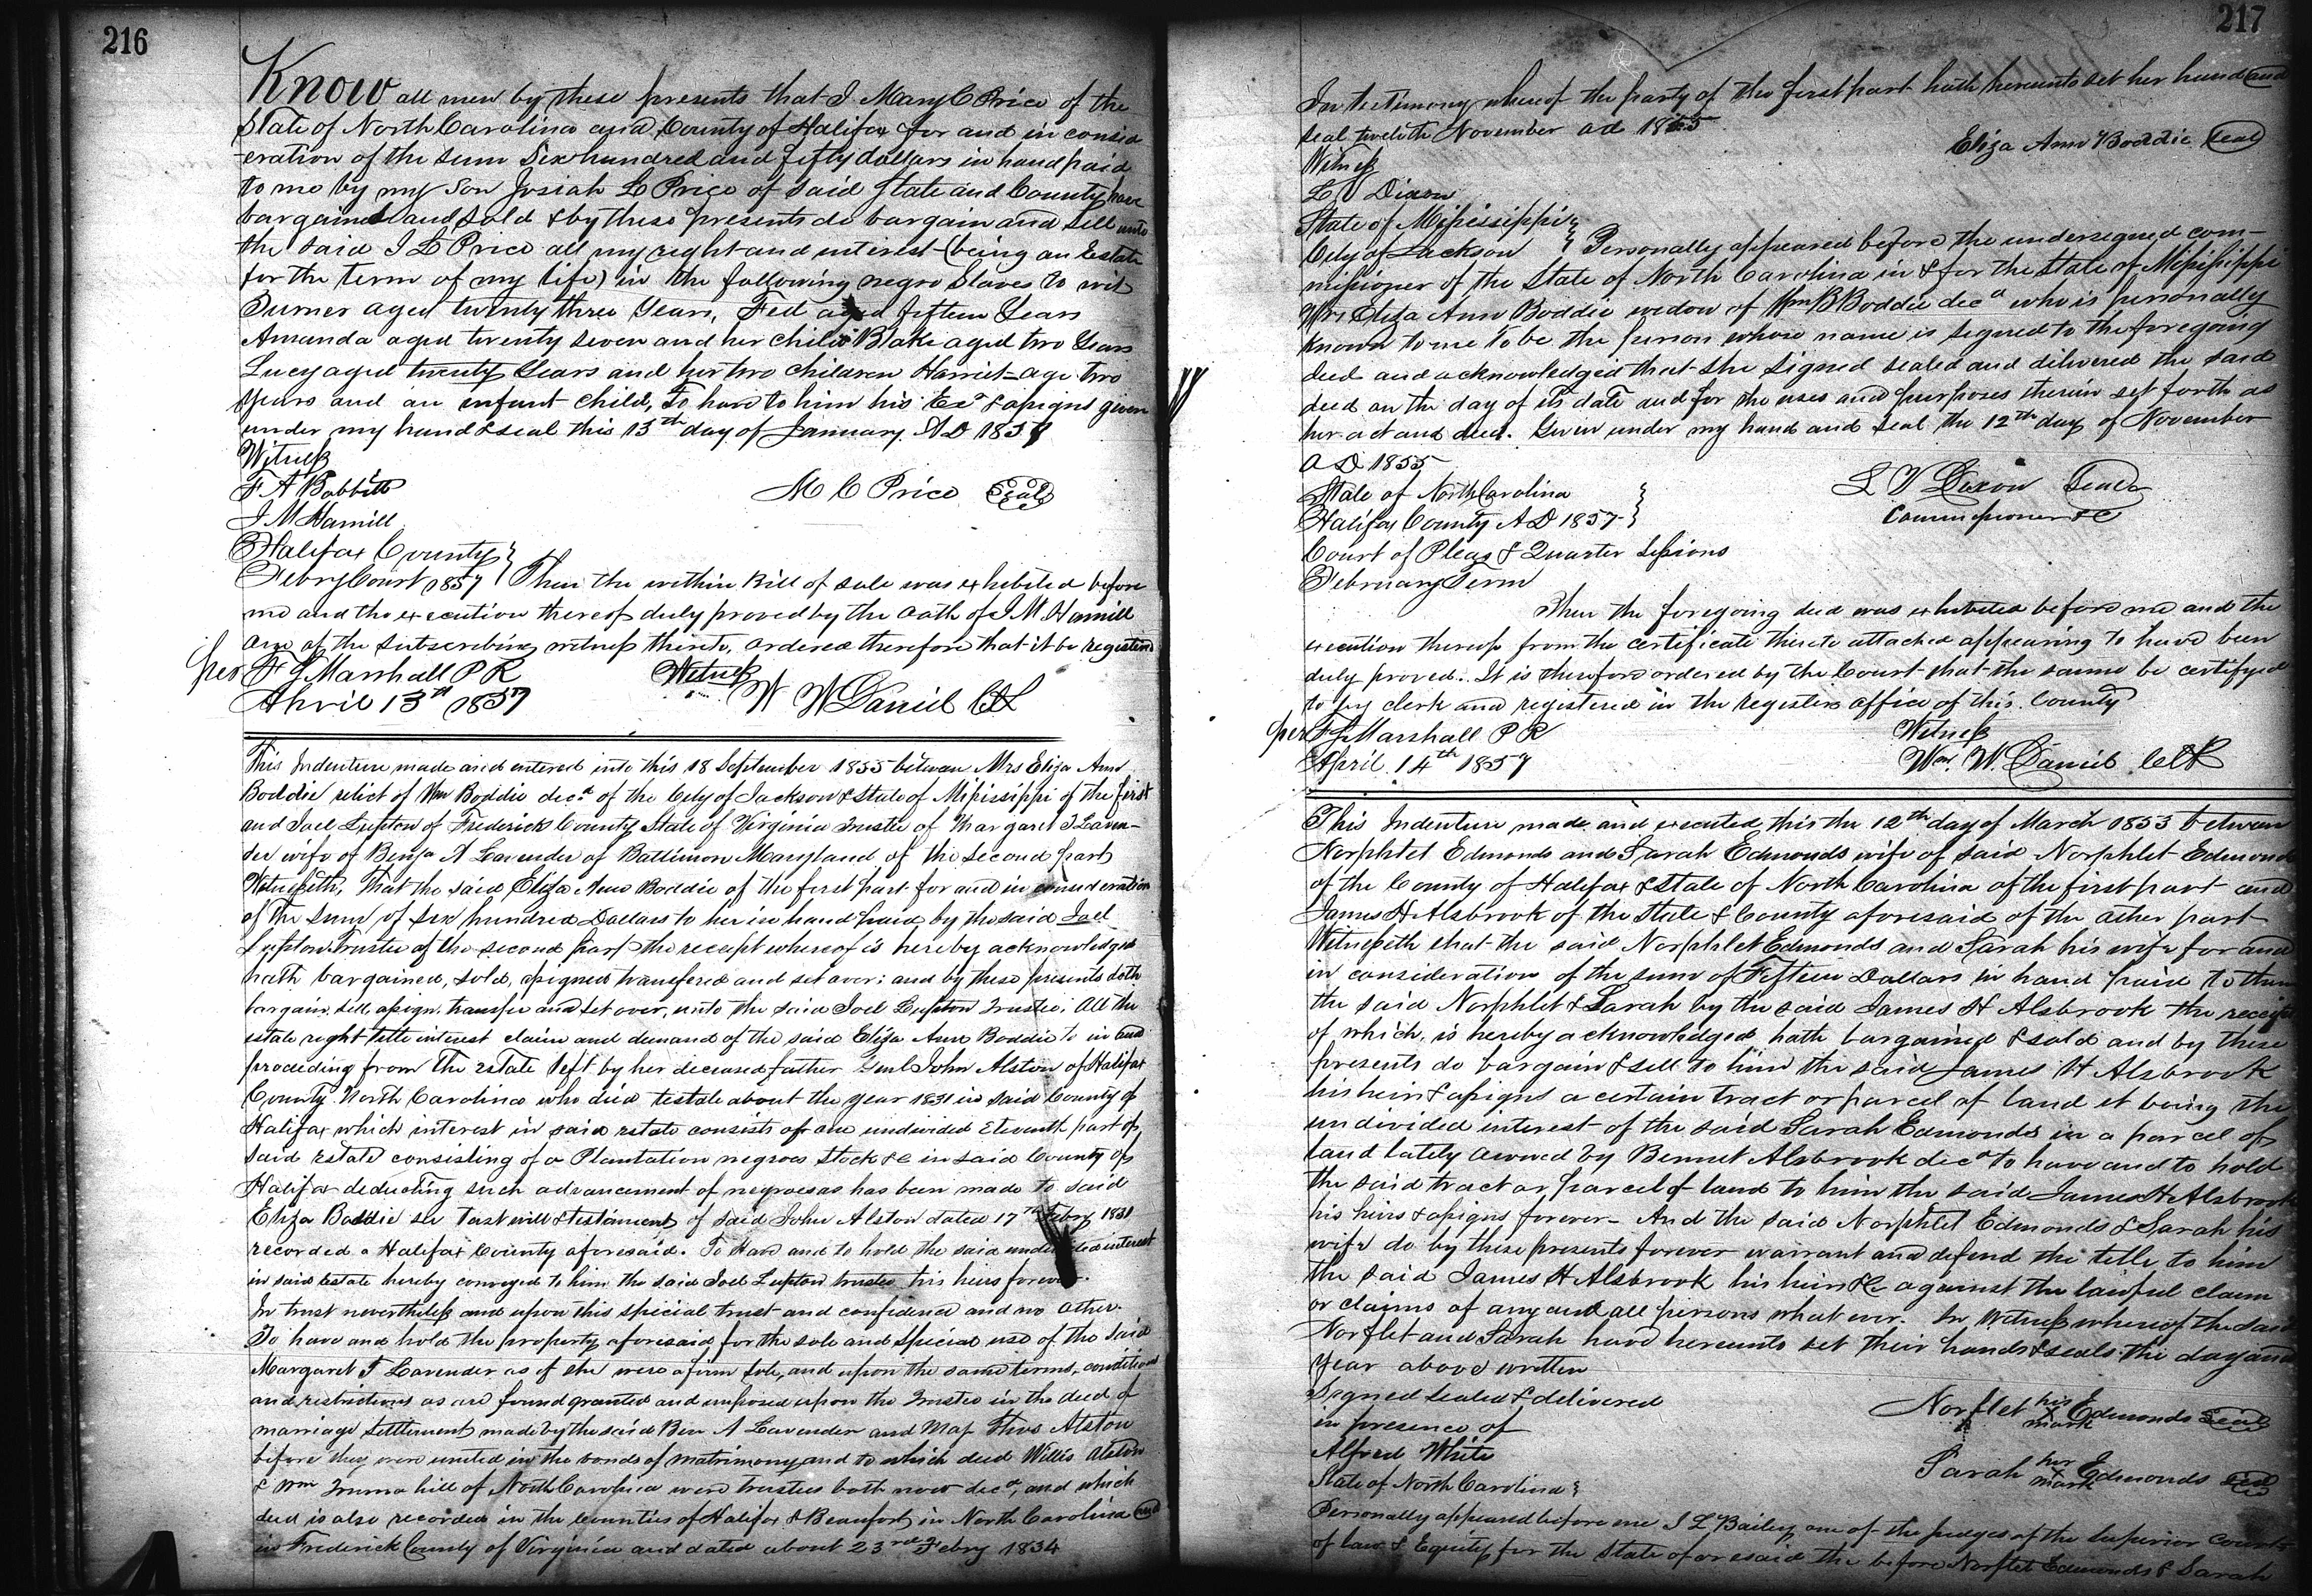 216
Know all men by these presents that I Mary C Price of the
State of North Carolina and County of Halifax for and in consid
-eration of the sum Six hundred and fifty dollars in hand paid
to me by my son Josiah L Price of said State and County have
bargained and sold & by these presents do bargain and sell unto
the said J L Price all my right and interest (being an Estate
for the term of my life) in the following negro Slaves to wit
Turner aged twenty three Years, Fed aged fifteen Years
Amanda aged twenty seven and her child Blake aged two Years
Lucy aged twenty Years and her two children Harriet age two
years and an infant child, To have to him his Exs & assigns given
under my hand & seal this 13th day of January AD 1857
Witness
F A Babbitt
M C Price Seal
J M Hamill
Halifax County }
Febry Court 1857 } Then the within Bill of sale was exhibited before
me and the execution thereof duly proved by the oath of J. M. Hamill
one of the subscribing witness thereto, ordered therefore that it be registered
per F G Marshall P R
Witness
April 13th 1857
W W Daniel Clk
This Indenture made and entered into this 18 September 1855 between Mrs Eliza Ann
Boddie relict of Wm Boddie decd of the City of Jackson & State of Mississippi of the first
and Joel Lupton of Frederick County State of Virginia Trustee of Margaret T Laven-
der wife of Benja A Lavender of Baltimore Maryland of the second part
Witnesseth, That the said Eliza Ann Boddie of the first part for and in consideration
of the sum of six hundred Dollars to her in hand paid by the said Joel
Lupton Trustee of the second part the receipt whereof is hereby acknowledged
hath bargained, sold, assigned transfered and set over; and by these presents doth
bargain, sell, assign, transfer and set over, unto the said Joel Lupton Trustee; All the
estate right title interest claim and demand of the said Eliza Ann Boddie to in and
proceding from The estate left by her deceased father Genl John Alston of Halifax
County North Carolina who died testate about the year 1831 in said County of
Halifax which interest in said estate consists of one undivided Eleventh part of
said estate consisting of a Plantation negroes stock &c in said County of
Halifax deducting such advancement of negroes as has been made to said
Eliza Boddie see last will & testament of said John Alston dated 17th Febry 1831
recorded a Halifax County aforesaid. To Have and to hold the said undivided interest
in said Estate hereby conveyed to him the said Joel Lupton trustee his heirs forever.
In trust nevertheless and upon this special trust and confidence and no other.
To have and hold the property aforesaid for the sole and special use of the said
Margaret T Lavender as if she were a fem sole, and upon the same terms, conditions
and restrictions as are found granted and imposed upon the Trustee in the deed of
marriage settlement made by the said Ben A Lavender and Mag Thos Alston
before they were united in the bonds of matrimony and to which deed Willis Alston
& Wm hill of North Carolina were trustees both now decd, and which
deed is also recorded in the Counties of Halifax & Beaufort in North Carolina and
in Frederick County of Virginia and dated about 23rd Febry 1834
217
In testimony whereof the party of the first part hath hereunto set her hand and
seal twelvth November AD 1855
Eliza Ann Boddie Seal
Witness
L V Dixon
State of Mississippi }
City of Jackson } Personally appeared before the undersigned com-
missioner of the State of North Carolina in & for the State of Mississippi
Mrs Eliza Ann Boddie widow of Wm B Boddie decd who is personally
known to me to be the person whose name is signed to the foregoing
deed and acknowledged that she signed sealed and delivered the said
deed on the day of its date and for the uses and purposes therein set forth as
her act and deed. Given under my hand and seal the 12th day of November
A D 1855
L V Dixon Seal
State of North Carolina }
Halifax County A D 1857 }
Commissioner &c
Court of Pleas & Quarter Sessions
February Term
Then the foregoing deed was exhibited before me and the
execution thereof from the certificate thereto attached appearing to have been
duly proved. It is therefore ordered by the Court that the same be certifyed
to by clerk and registered in the registers office of this County
per F G Marshall P R
Witness
April 14th 1857
Wm. W. Daniel Clk
This Indenture made and executed this the 12th day of March 1853 between
Norphlet Edmonds and Sarah Edmonds wife of said Norphlet Edmonds
of the County of Halifax & State of North Carolina of the first part and
James H Alsbrook of the State & County aforesaid of the other part
Witnesseth that the said Norphlet Edmonds and Sarah his wife for and
in consideration of the sum of Fifteen Dollars in hand paid to them
the said Norphlet & Sarah by the said James H Alsbrook the receipt
of which, is hereby acknowledged hath bargained & sold and by these
presents do bargain & sell to him the said James H Alsbrook
his heirs & assigns a certain tract or parcel of land it being the
undivided interest of the said Sarah Edmonds in a parcel of
land lately owned by Bennet Alsbrook decd to have and to hold
the said tract or parcel of land to him the said James H Alsbrook
his heirs & assigns forever- And the said Norphlet Edmonds & Sarah his
wife do by these presents forever warrant and defend the title to him
the said James H Alsbrook his heirs &c against the lawful claim
or claims of any and all persons what ever. In Witness whereof the said
Norflet and Sarah have hereunto set their hands & seals the day and
year above written
Signed Sealed & delivered
Norflet his X mark Edmonds Seal
in presence of
Alfred White
Sarah her X mark Edmonds Seal
State of North Carolina }
Personally appeared before me J L Bailey one of the judges of the Superior Courts
of law & Equity for the State aforesaid the before Norflet Edmonds & Sarah